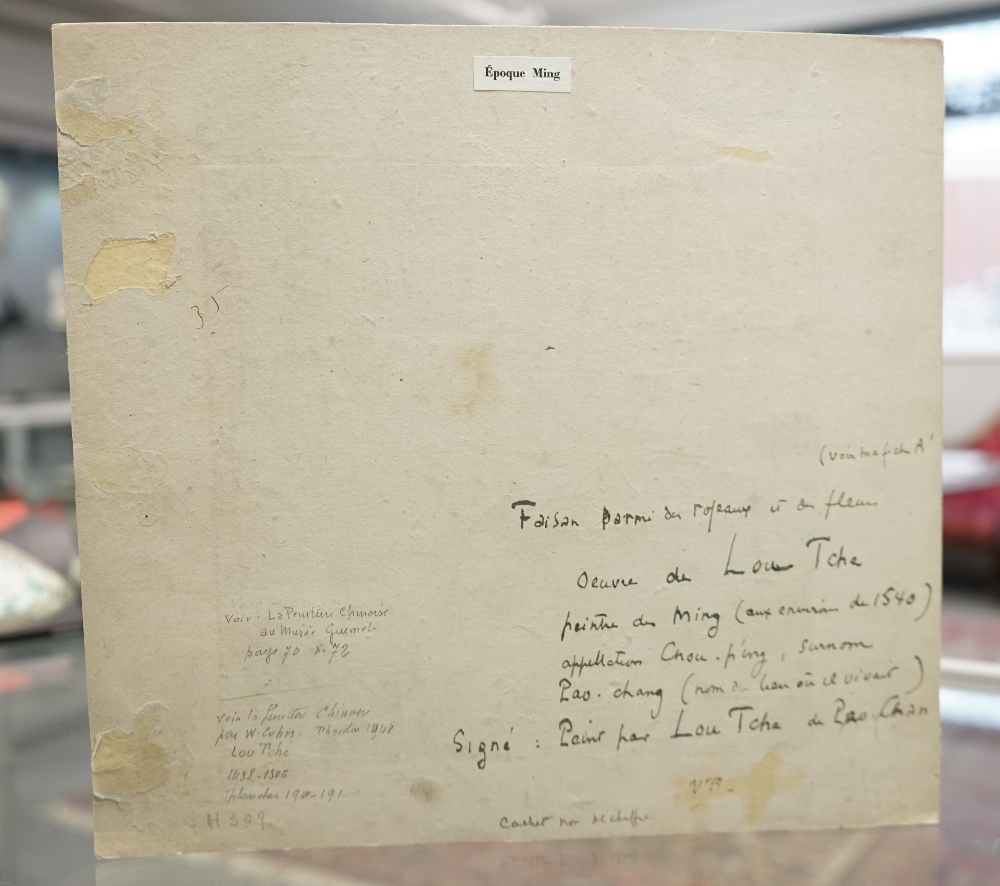 Époque Ming
35
(voir ma fiche A
Faisan parmi des roseaux et des fleurs
Oeuvre de Lou Tche
peintre des Ming (aux environs de 1540)
appellation Chou-p'ing, surnom
Pao-chang (nom du lieu où il vivait)
Signé : Peint par Lou Tche de Pao-Chan
VP.
Cachet non déchiffré
voir. La Peinture Chinoise
au Musée Guimet
page 70 n. 72
voir la peinture Chinoise
par W. Cohn. Phaidon 1948
Lou Tche
planches 190-191
H 309